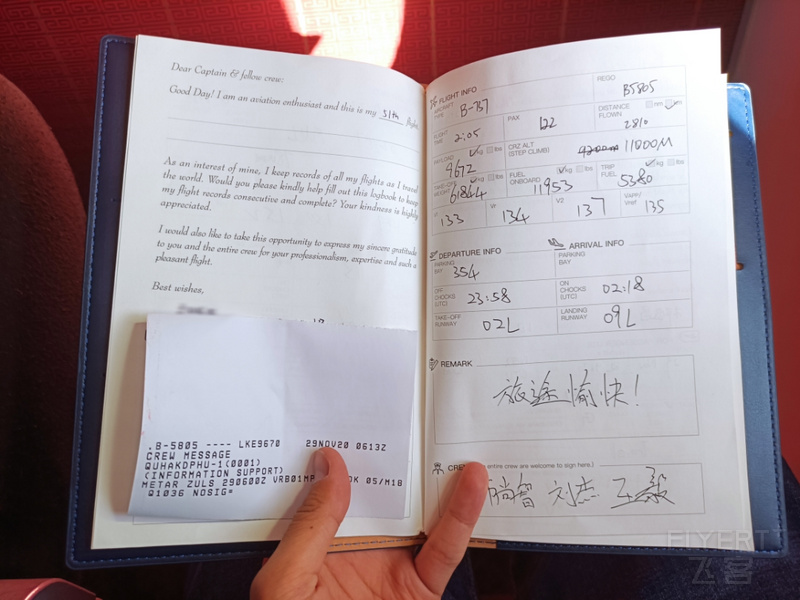 Dear Captain & fellow crew:
Good Day! I am an aviation enthusiast and this is my 51th flight.
As an interest of mine, I keep records of all my flights as I travel
the world. Would you please kindly help fill out this logbook to keep
my flight records consecutive and complete? Your kindness is highly
appreciated.
I would also like to take this opportunity to express my sincere gratitude
to you and the entire crew for your professionalism, expertise and such a
pleasant flight.
Best wishes,
.B-5805 ---- LKE9670 29NOV20 0613Z
CREW MESSAGE
QUHAKDPHU-1(0001)
(INFORMATION SUPPORT)
METAR ZULS 290600Z VRB01MP OK 05/M18
Q1036 NOSIG=
FLIGHT INFO
AIRCRAFT TYPE B-737
REGO B5805
FLIGHT TIME 2:05
PAX 122
DISTANCE FLOWN nm km 2810
PAYLOAD kg lbs 9672
CRZ ALT (STEP CLIMB) 11000M
TAKE-OFF WEIGHT kg lbs 61844
FUEL ONBOARD kg lbs 11953
TRIP FUEL kg lbs 5380
V1 133
Vr 134
V2 137
Vapp/Vref 135
DEPARTURE INFO
ARRIVAL INFO
PARKING BAY 354
PARKING BAY
OFF CHOCKS (UTC) 23:58
ON CHOCKS (UTC) 02:18
TAKE-OFF RUNWAY 02L
LANDING RUNWAY 09L
REMARK
旅途愉快!
CREW entire crew are welcome to sign here.)
FLYERT
飞客